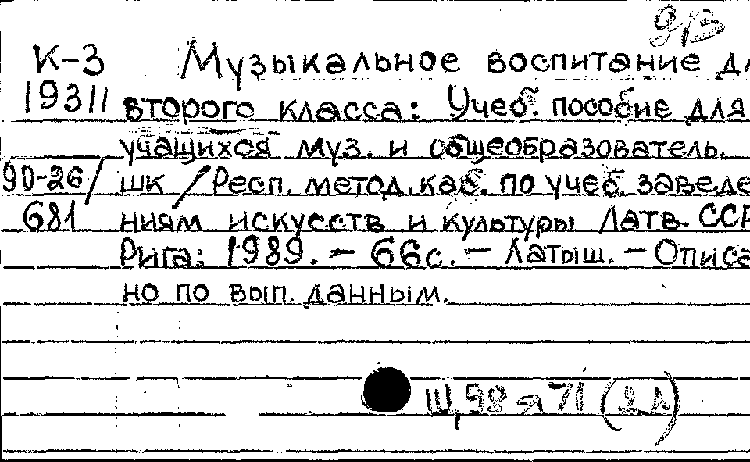 К-3 Музыкальное воспитание дл
19311 второго класса: Учеб. пособие для
учащихся муз. и общеобразователь.
90-26/ шк / Респ. метод. каб. по учеб. заведе
681 ниям искусств и культуры Латв. ССР
Рига: 1989. - 66с. - Латыш. - Описа
но по вып. данным.
Щ,98 я 71